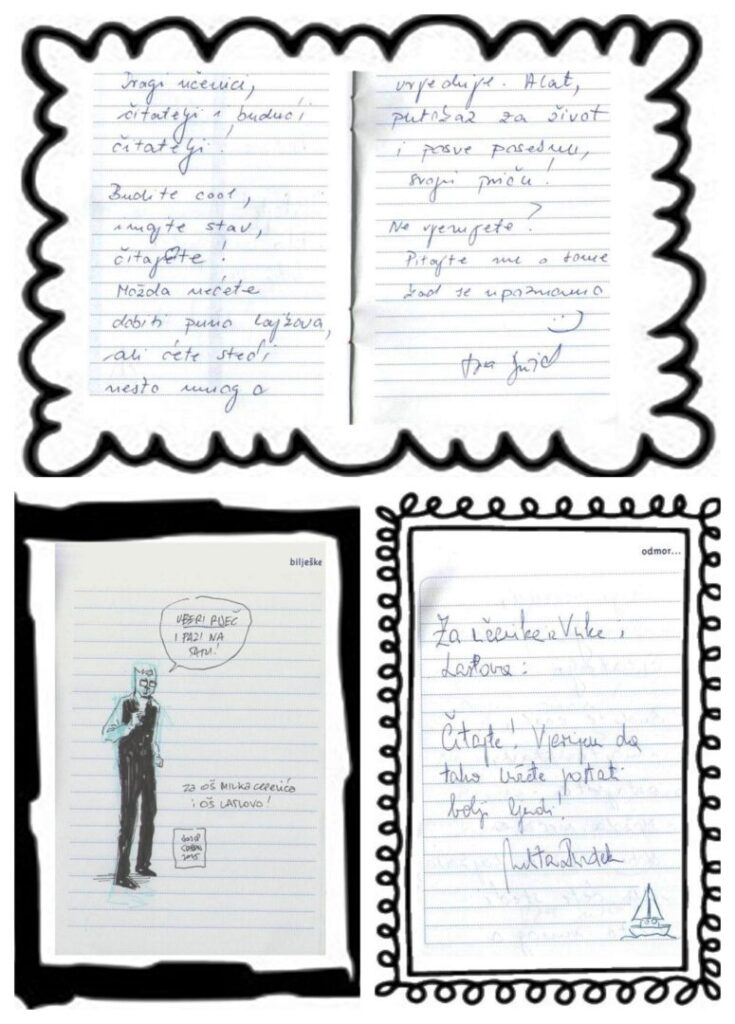 Dragi učenici,
čitatelji i budući
čitatelji!
Budite cool,
imajte stav,
čitajte!
Možda nećete
dobiti puno lajkova,
ali ćete steći
nešto mnogo
vrjednije. Alat,
putokaz za život
i posve posebnu,
svoju priču!
Ne vjerujete?
Pitajte me o tome
kad se upoznamo
bilješke
UBERI RIJEČ
I PAZI NA
ZA OŠ MILKA CEPELIĆA
I OŠ LASLOVO!
2015
odmor...
Za učenike iz Vuke i
Laslova:
Čitajte! Vjerujem da
tako ćete postati
bolji ljudi!